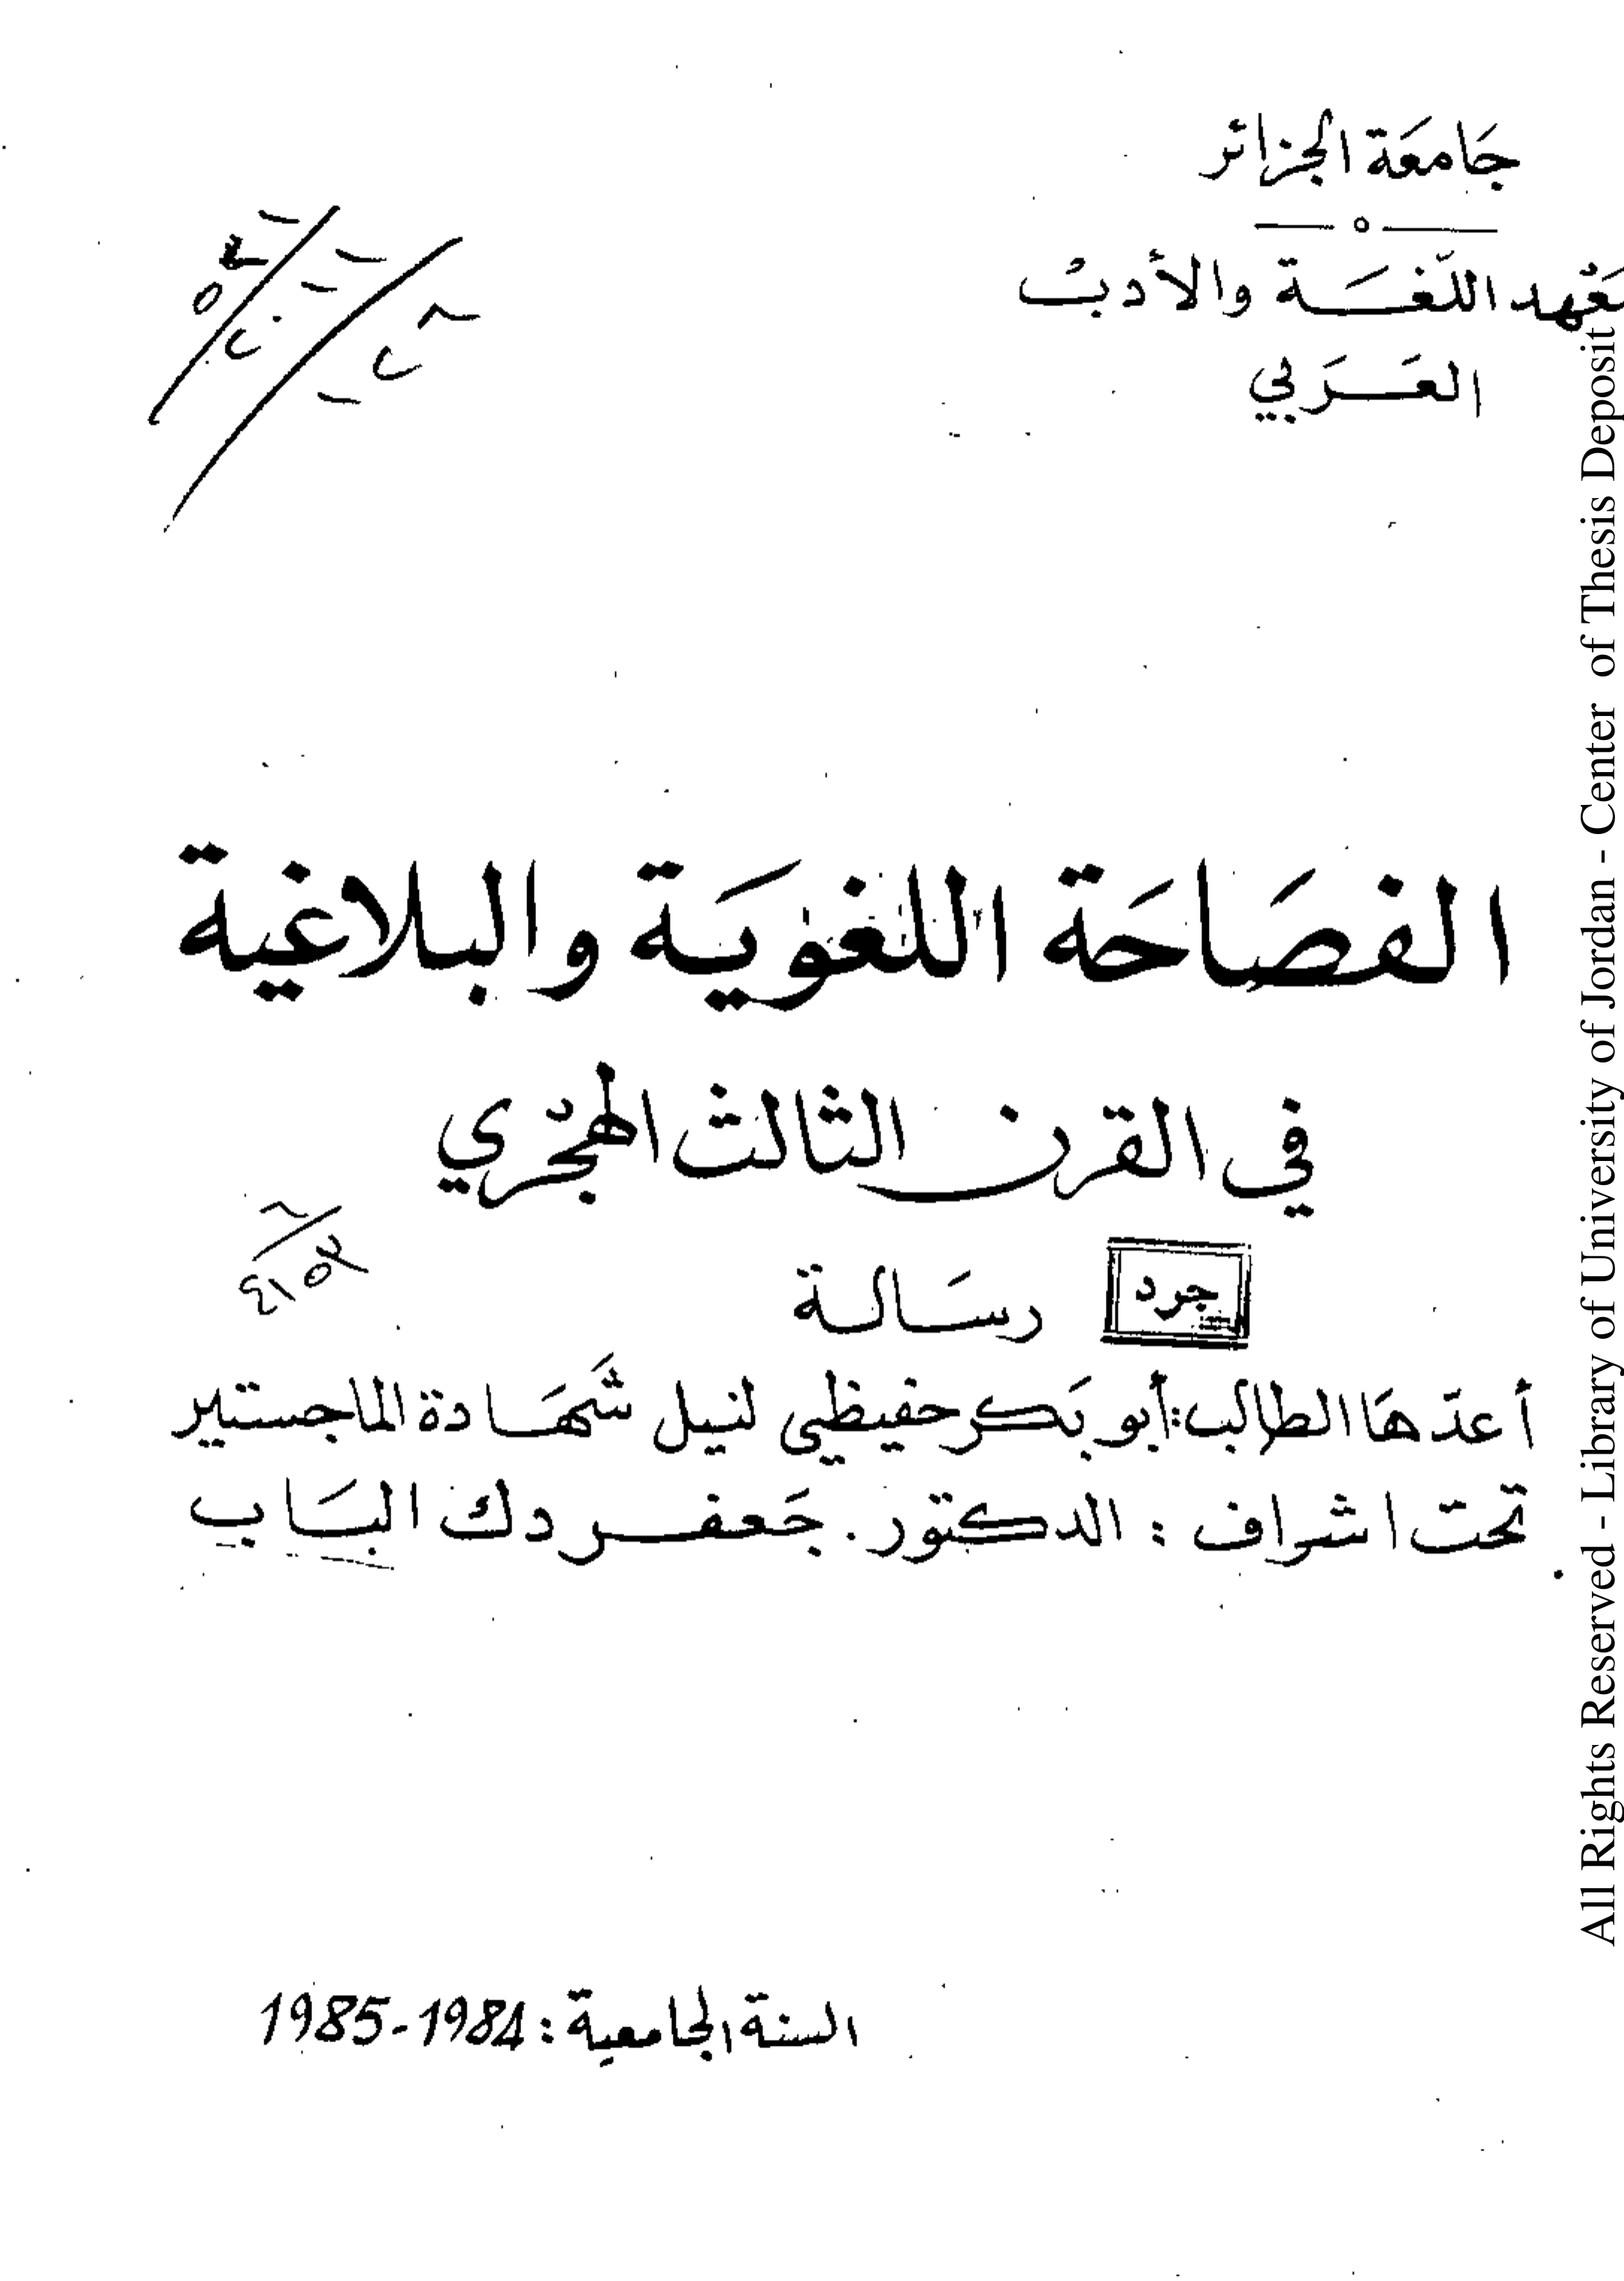 جَامعَة الجزائر
مَعْهد اللّغَة والأدبْ
العَرَبي
الفصَاحَة اللغويَة والبلاغية
في القرن الثالث الهجْري
جرد
رسَالة
أعدّهَا الطالب: أبو بَكر حفيظي لنيل شَهَادة الماجستير
تحت اشراف : الدكتور. جَعفر دك البَاب
السنة الجامعية : 1984-1985
All Rights Reserved - Library of University of Jordan - Center of Thesis Deposit